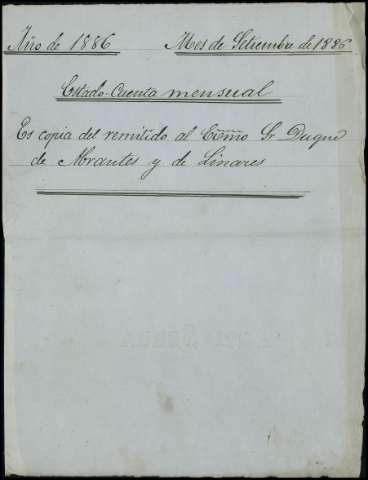 Año de 1886 Mes de Setiembre de 1886
Estado-Cuenta mensual
Es copia del remitido al Exmo Sr Duque
de Abrantes y de Linares